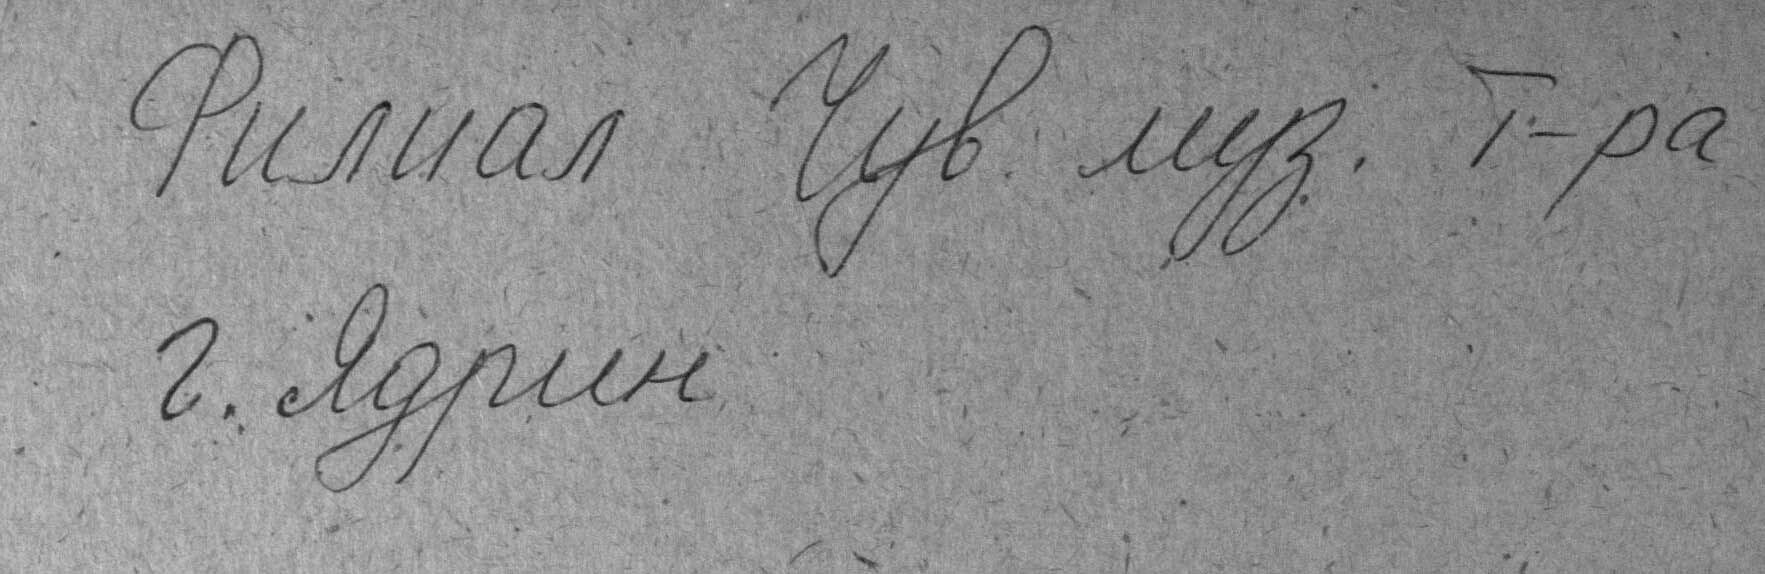 Филиал Чув. муз. Т-ра
г. Ядрин